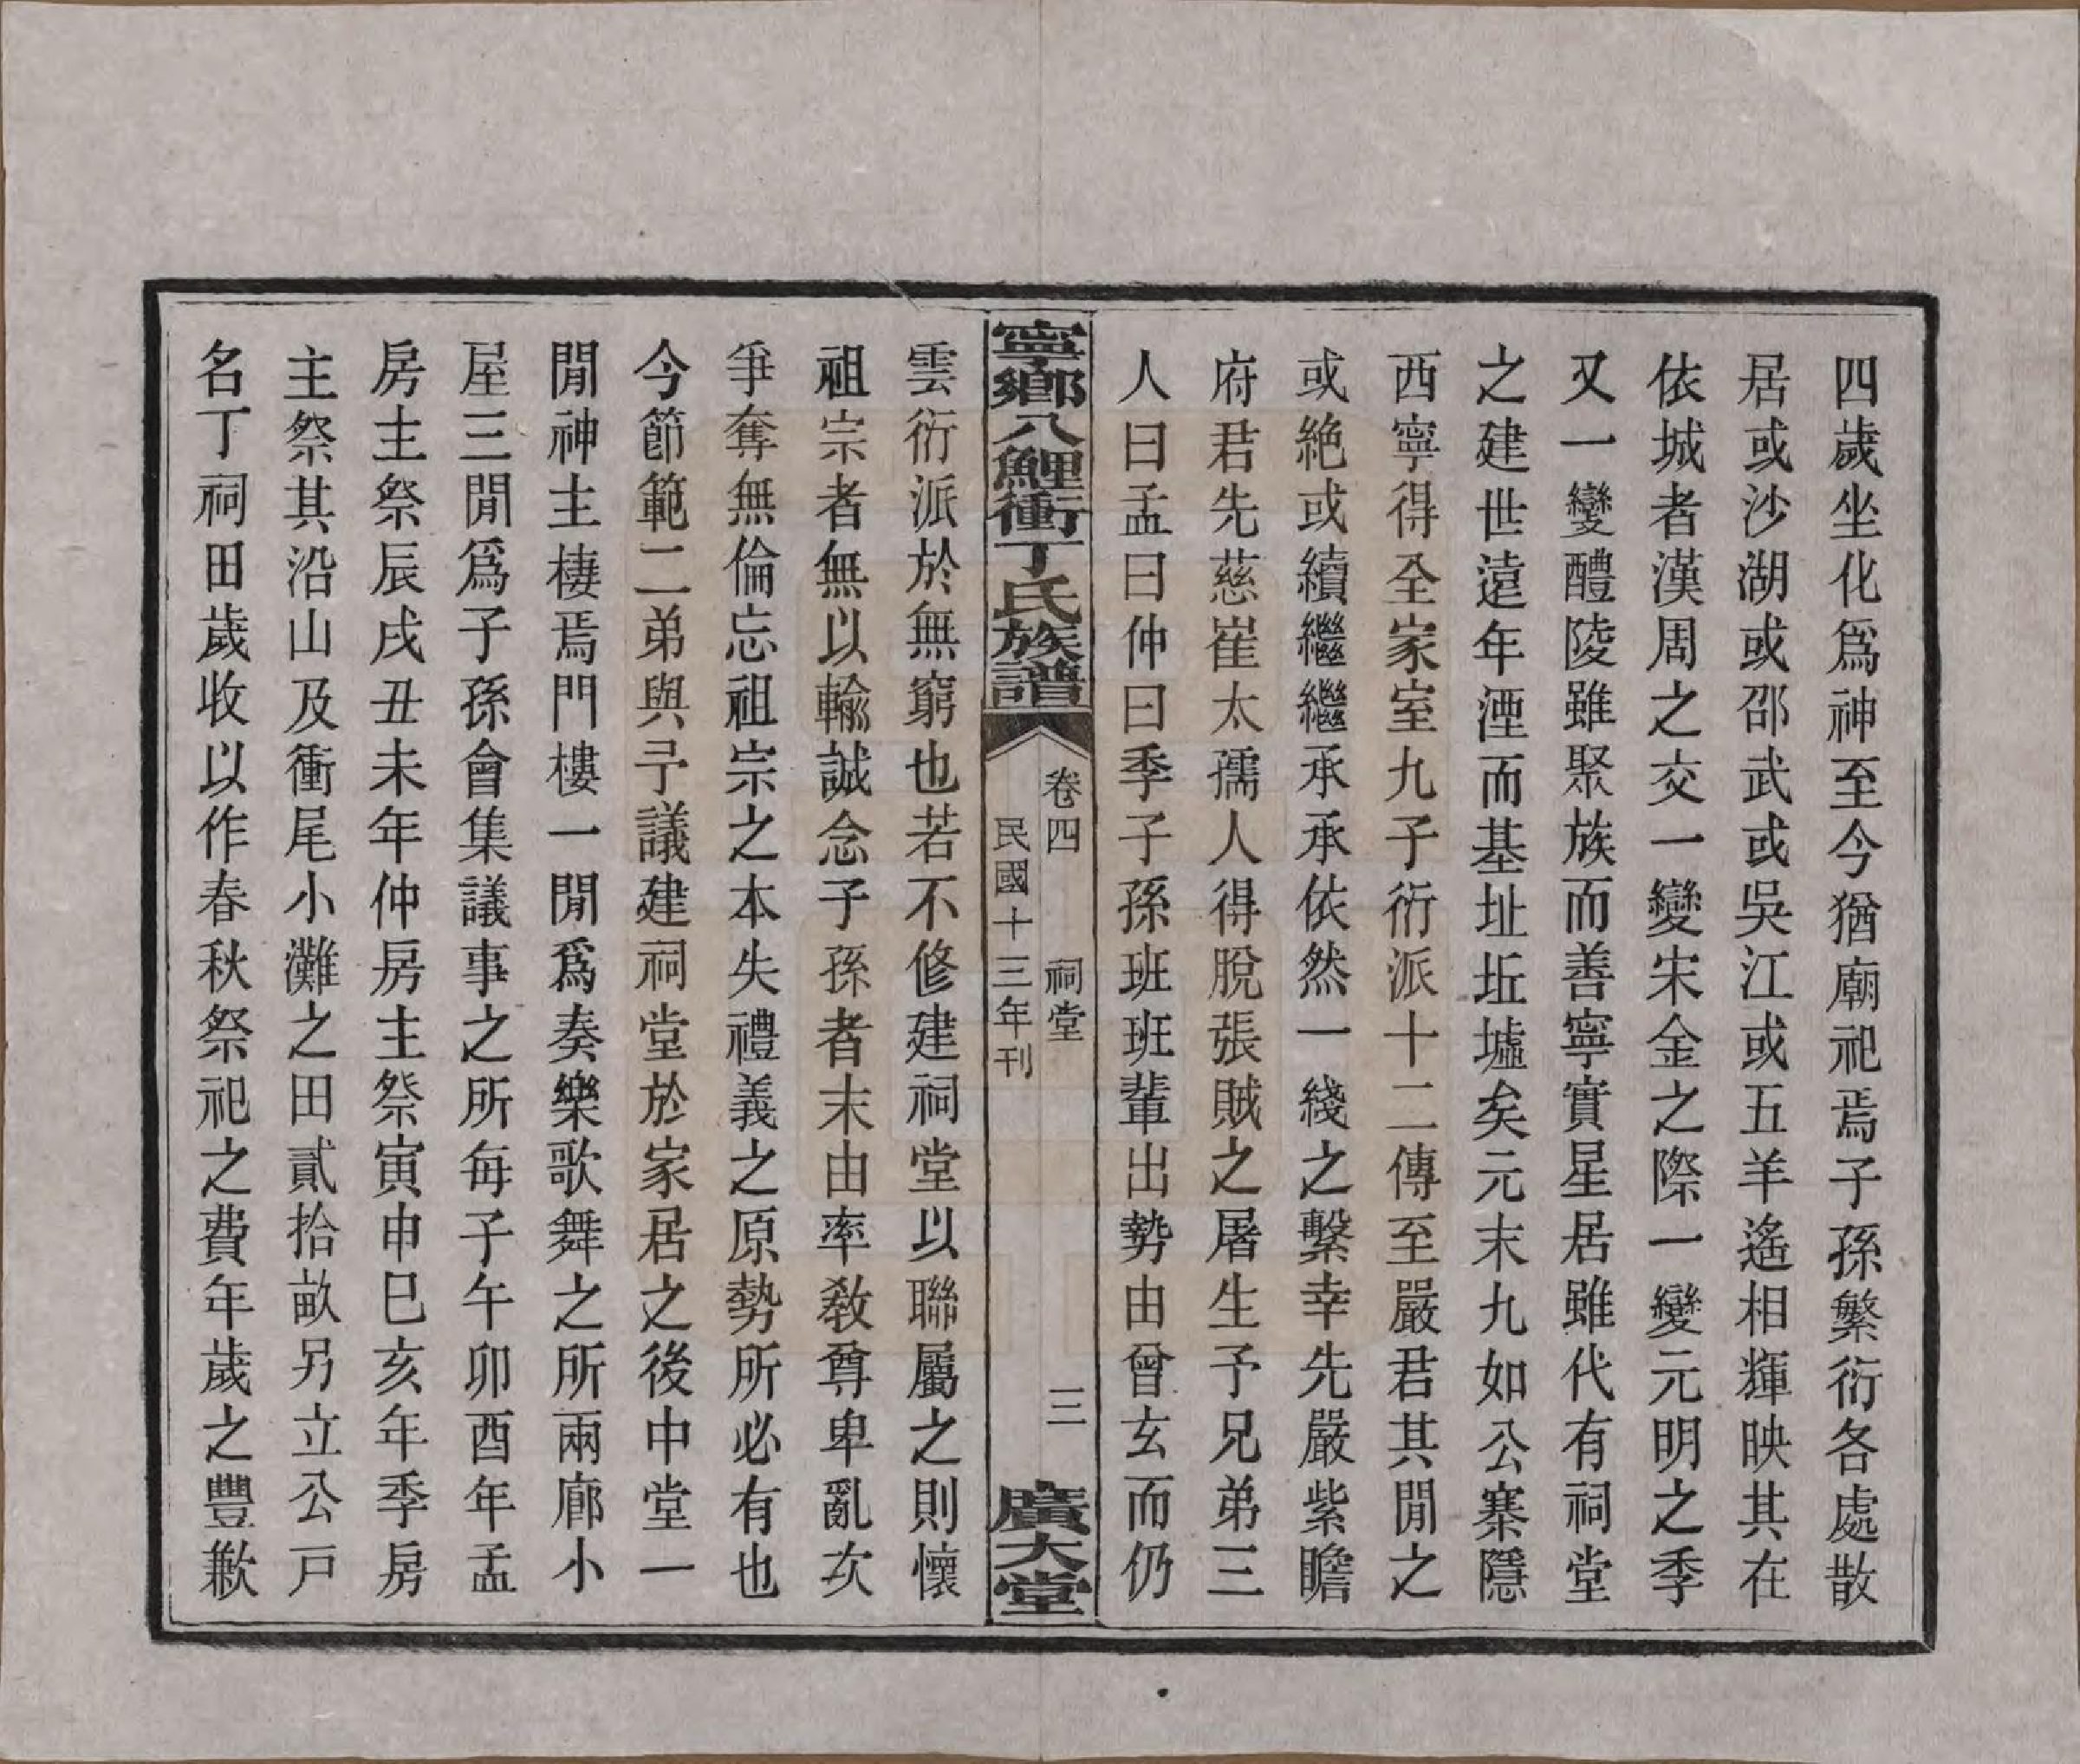 四歲坐化爲神至今猶廟祀焉子孫繁衍各處散
居或沙湖或邵武或吳江或五羊遙相輝映其在
依城者漢周之交一變宋金之際一變元明之季
又一變醴陵雖聚族而善寧實星居雖代有祠堂
之建世遠年湮而基址坵墟矣元末九如公寨隱
西寧得全家室九子衍派十二傳至嚴君其閒之
或絶或續繼繼承承依然一綫之繫幸先嚴紫瞻
府君先慈崔太孺人得脫張賊之屠生予兄弟三
人曰孟曰仲曰季子孫班班輩出勢由曾玄而仍
寧鄉八鯉衝丁氏族譜
卷四　祠堂　三
民國十三年刊
廣大堂
雲衍派於無窮也若不修建祠堂以聯屬之則懷
祖宗者無以輸誠念子孫者末由率敎尊卑亂次
爭奪無倫忘祖宗之本失禮義之原勢所必有也
今節範二弟與予議建祠堂於家居之後中堂一
閒神主棲焉門樓一閒爲奏樂歌舞之所兩廊小
屋三閒爲子孫會集議事之所每子午卯酉年孟
房主祭辰戌丑未年仲房主祭寅申巳亥年季房
主祭其沿山及衝尾小灘之田貳拾畝另立公戸
名丁祠田歲收以作春秋祭祀之費年歲之豐歉